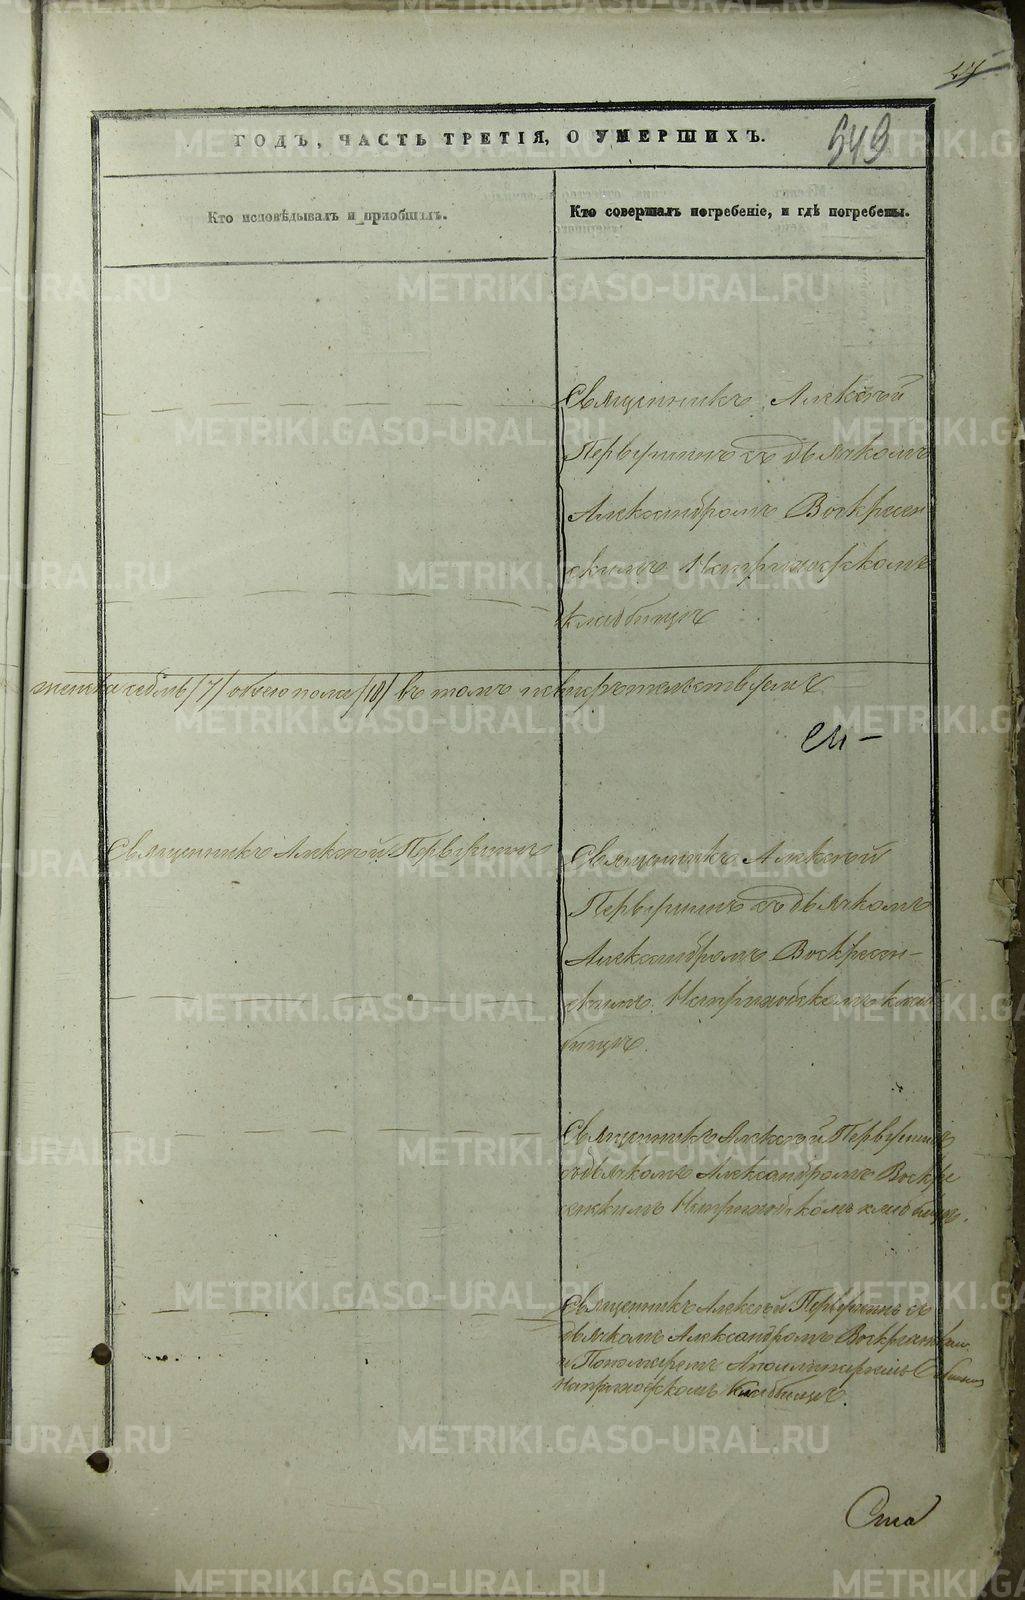 47
ГОДЪ, ЧАСТЬ ТРЕТІЯ, О УМЕРШИХЪ.
543
Кто исповѣдывалъ и пріобщалъ.
Кто совершалъ погребеніе, и гдѣ погребены.
Священникъ Алексѣй
Первушинъ съ дьячкомъ
Александромъ Воскресен
скимъ На приходскомъ
кладбищѣ
женска седмь /7/ обоего пола /18/ въ томъ свидѣтельствуемъ
Священникъ Алексѣй Первушинъ
Священникъ Алексѣй
Первушинъ съ дьячкомъ
Александромъ Воскресен-
скимъ На приходскомъ клад
бищѣ
Священникъ Алексѣй Первушинъ
съ дьячкомъ Александромъ Воскре
сенскимъ На приходскомъ кладбищѣ.
Священникъ Алексѣй Первушинъ съ
дьячкомъ Александромъ Воскресенским
и Пономаремъ
На приходскомъ кладбищѣ.
METRIKI.GASO-URAL.RU